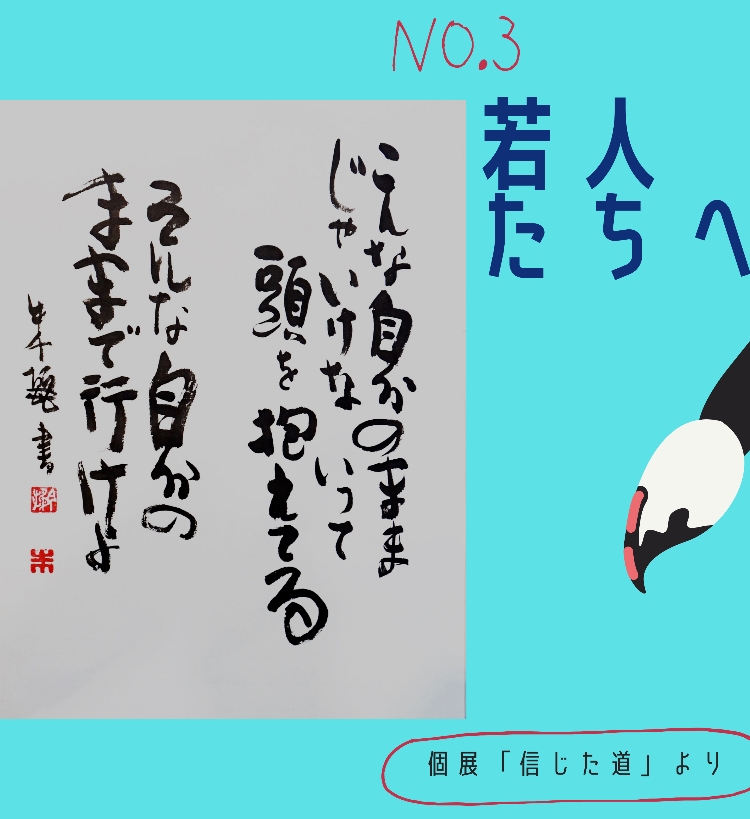 NO.3
若人
たちへ
こんな自分のまま
じゃいけないって
頭を抱えてる
そんな自分の
ままで行けよ
書
個展「信じた道」より